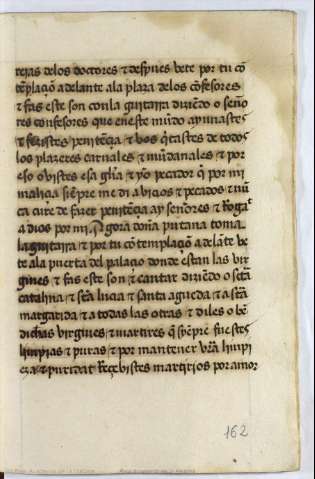 rejas delos doctores & despues vete por tu cõ
tẽplaçiõ adelante ala plaza delos cõfesores
& fas este son con la guitarra diziẽdo o seño
res confesores que en este mũdo ayunastes
& fezistes penitẽçia & vos q̃tastes de todos
los plazeres carnales & mũdanales & por
eso ovistes esa gl̃ia & yo pecador q̃ por mi
maliçia siẽpre me di a viçios & pecados & nũ
ca cure de fazer penitẽçia ay señores & rogat
a dios por mi. agora doña putana toma
la guitarra & por tu cõtemplaçiõ adelãte ve
te ala puerta del palaçio donde estan las vir
gines & fas este son & cantar diziẽdo o sc̃tã
catalina & sc̃ã luçia & santa agueda & a sc̃tã
margarida & a todas las otras & diles o bẽ
dichas virgines & martires q̃ syẽpre fuestes
linpias & puras & por mantener vr̃a linpi
eza & puridat Resçebistes martirios por amor
162